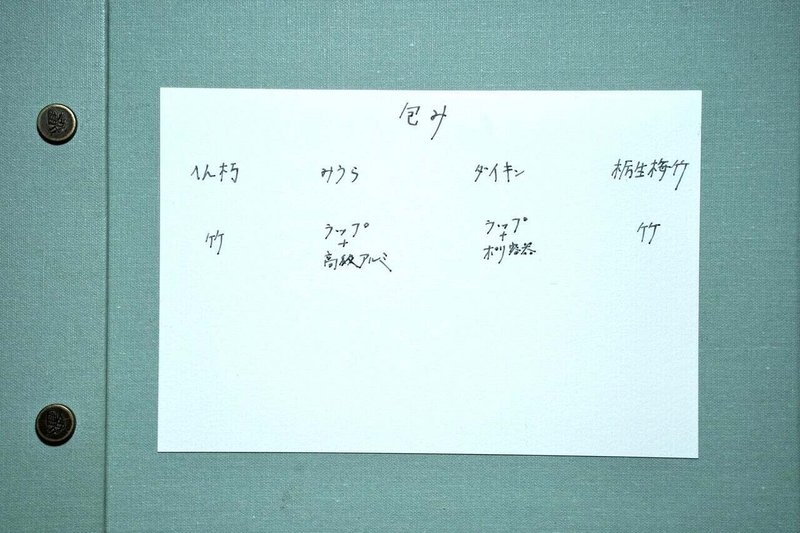 包み
へん朽 みうら ダイキン 栃生梅竹
竹
ラップ
+
高級アルミ
ラップ
+
ポリ容器
竹